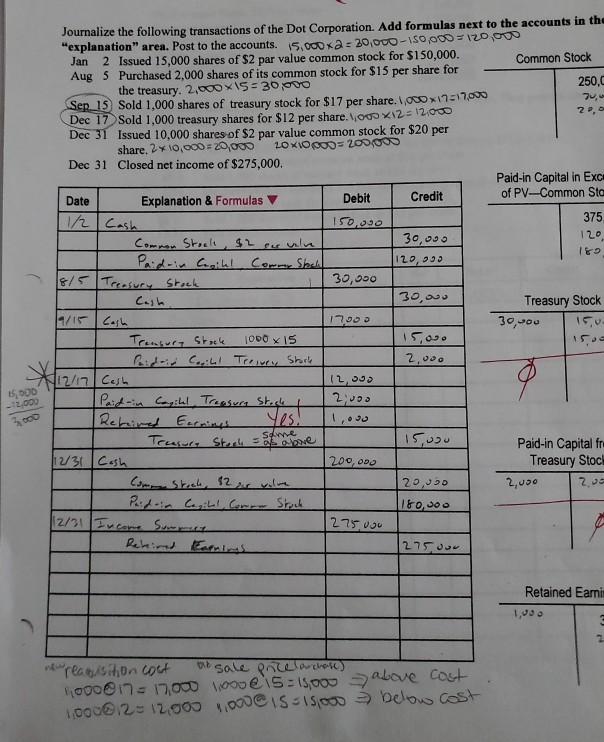 Journalize the following transactions of the Dot Corporation. Add formulas next to the accounts in the
"explanation" area. Post to the accounts. 15,000 x 2 = 30,000 - 150,000 = 120,000
Jan 2 Issued 15,000 shares of $2 par value common stock for $150,000.
Aug 5 Purchased 2,000 shares of its common stock for $15 per share for
the treasury. 2,000 x 15 = 30,000
Sep 15 Sold 1,000 shares of treasury stock for $17 per share. 1,000 x 17 = 17,000
Dec 17 Sold 1,000 treasury shares for $12 per share. 1,000 x 12 = 12,000
Dec 31 Issued 10,000 shares of $2 par value common stock for $20 per
share. 2 x 10,000 = 20,000 20 x 10,000 = 200,000
Dec 31 Closed net income of $275,000.
Date Explanation & Formulas ▼ Debit Credit
1/2 Cash 150,000
Common Stock, $2 par value 30,000
Paid-in Capital Common Stock 120,000
8/5 Treasury Stock 30,000
Cash 30,000
9/15 Cash 17000
Treasury Stock 1000 x 15 15,000
Paid-in Capital Treasury Stock 2,000
12/17 Cash 12,000
15,000
-12,000
Paid-in Capital, Treasury Stock 2,000
Retained Earnings Yes! 1,000
Treasury Stock = same as above 15,000
12/31 Cash 200,000
Common Stock, $2 par value 20,000
Paid-in Capital, Common Stock 180,000
12/31 Income Summary 275,000
Retained Earnings 275,000
new reaquisition cost sale price
1,000@17 = 17,000 1,000@15 = 15,000 ⇒ above cost
1,000@12 = 12,000 1,000@15 = 15,000 ⇒ below cost
Common Stock
250,
20,0
Paid-in Capital in Exc
of PV—Common Sto
375
120,
180,
Treasury Stock
30,000 15,0
15,00
Ø
Paid-in Capital fr
Treasury Stock
2,000 2,00
Retained Earni
1,000